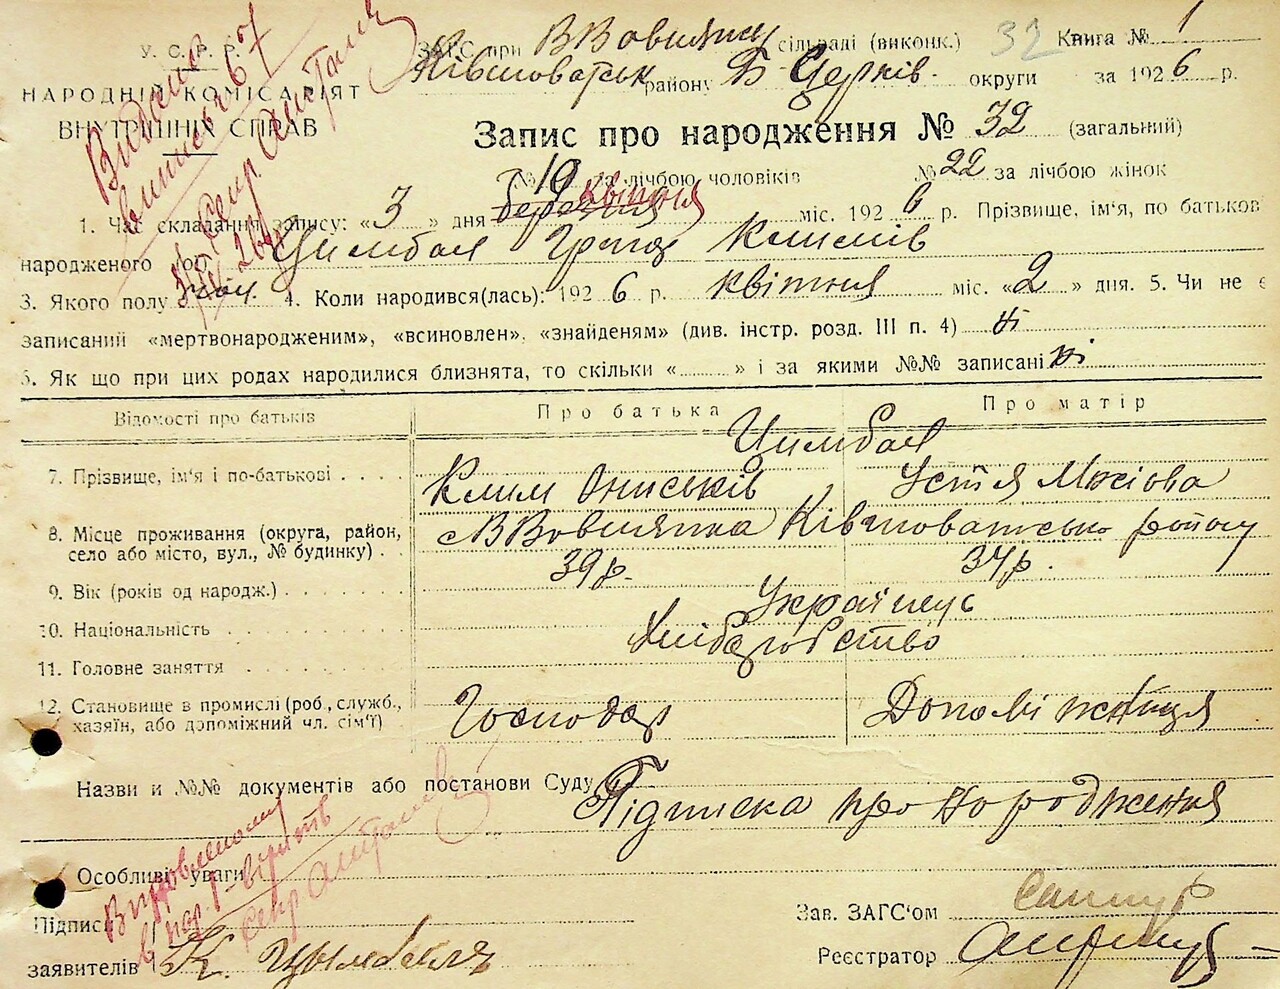 У. С. Р. Р.
НАРОДНІЙ КОМІСАРІЯТ
ВНУТРІШНІХ СПРАВ
ЗАГС при В Вовнянці сільраді (виконк.) 32 Книга № 1
Ківшоватськ району Б Церків. округи за 1926 р.
Запис про народження № 32 (загальний)
№ 10 за лічбою чоловіків № 22 за лічбою жінок
1. Час складання запису: «3» дня березня квітня міс. 1926 р. Прізвище, ім'я, по батьков
народженого Цимбал Климів
3. Якого полу чол. 4. Коли народився(лась): 1926 р. квітня міс. «2» дня. 5. Чи не є
записаний «мертвонародженим», «всиновлен», «знайденям» (див. інстр. розд. III п. 4) ні
6. Як що при цих родах народилися близнята, то скільки « » і за якими №№ записані ні
Відомості про батьків Про батька Про матір
Цимбал
7. Прізвище, ім'я і по-батькові Клим Ониськів Устя
8. Місце проживання (округа, район, село або місто, вул., № будинку) с В Вовнянка Ківшоватсько району
9. Вік (років од народж.) 39 р. 34 р.
10. Національність Українець
11. Головне заняття Хліборобство
12. Становище в промислі (роб., служб., хазяїн, або допоміжний чл. сім'ї) Господар
Назви и №№ документів або постанови Суду Підписка про народження
Особливі уваги
Підписи
заявителів К. Цымбалъ
Зав. ЗАГС'ом
Реєстратор
Видано
випиську 67
Секр
Виправленому
в пар. 1 вірить
секр